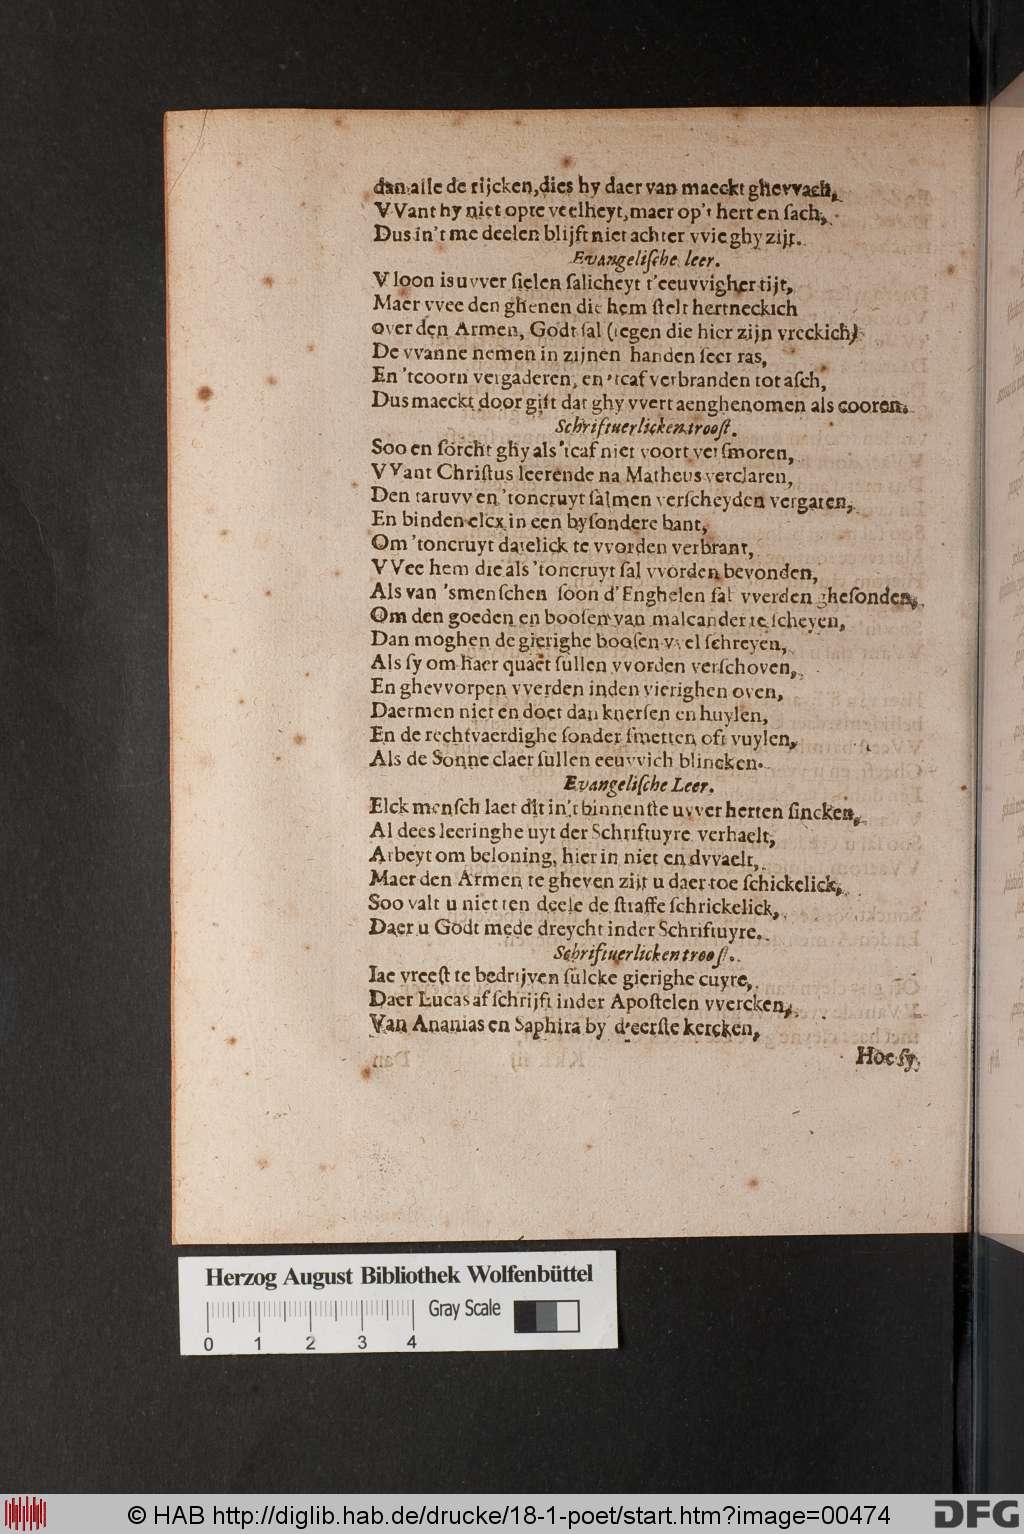 dan alle de rijcken, dies hy daer van maeckt ghevvach,
VVant hy niet opte veelheyt, maer op't hert en sach,
Dus in't me deelen blijft niet achter vvie ghy zijt.
Evangelische leer.
V loon is uvver sielen salicheyt t'eeuvvigher tijt,
Maer vvee den ghenen die hem stelt hertneckich
over den Armen, Godt sal (tegen die hier zijn vreckich)
De vvanne nemen in zijnen handen seer ras,
En 'tcoorn vergaderen, en 'tcaf verbranden tot asch,
Dus maeckt door gift dat ghy vvert aenghenomen als cooren.
Schriftuerlicken troost.
Soo en sorcht ghy als 'tcaf niet voort versmoren,
VVant Christus leerende na Matheus verclaren,
Den taruvv en 'toncruyt salmen verscheyden vergaren,
En binden elcx in een bysondere bant,
Om 'toncruyt datelick te vvorden verbrant,
VVee hem die als 'toncruyt sal vvorden bevonden,
Als van 'smenschen soon d'Enghelen sal vverden ghesonden,
Om den goeden en boosen van malcander te scheyen,
Dan moghen de gierighe boosen vvel schreyen,
Als sy om haer quaet sullen vvorden verschoven,
En ghevvorpen vverden inden vierighen oven,
Daermen niet en doet dan knersen en huylen,
En de rechtvaerdighe sonder smetten oft vuylen,
Als de Sonne claer sullen eeuvvich blincken.
Evangelische Leer.
Elck mensch laet dit in't binnenste uvver herten sincken,
Al dees leeringhe uyt der Schriftuyre verhaelt,
Arbeyt om beloning, hier in niet en dvvaelt,
Maer den Armen te gheven zijt u daer toe schickelick,
Soo valt u niet ten deele de straffe schrickelick,
Daer u Godt mede dreycht inder Schriftuyre.
Schriftuerlicken troost.
Iae vreest te bedrijven sulcke gierighe cuyre,
Daer Lucas af schrijft inder Apostelen vvercken,
Van Ananias en Saphira by d'eerste kercken,
Hoe sy
Herzog August Bibliothek Wolfenbüttel
Gray Scale
0 1 2 3 4
© HAB http://diglib.hab.de/drucke/18-1-poet/start.htm?image=00474
DFG